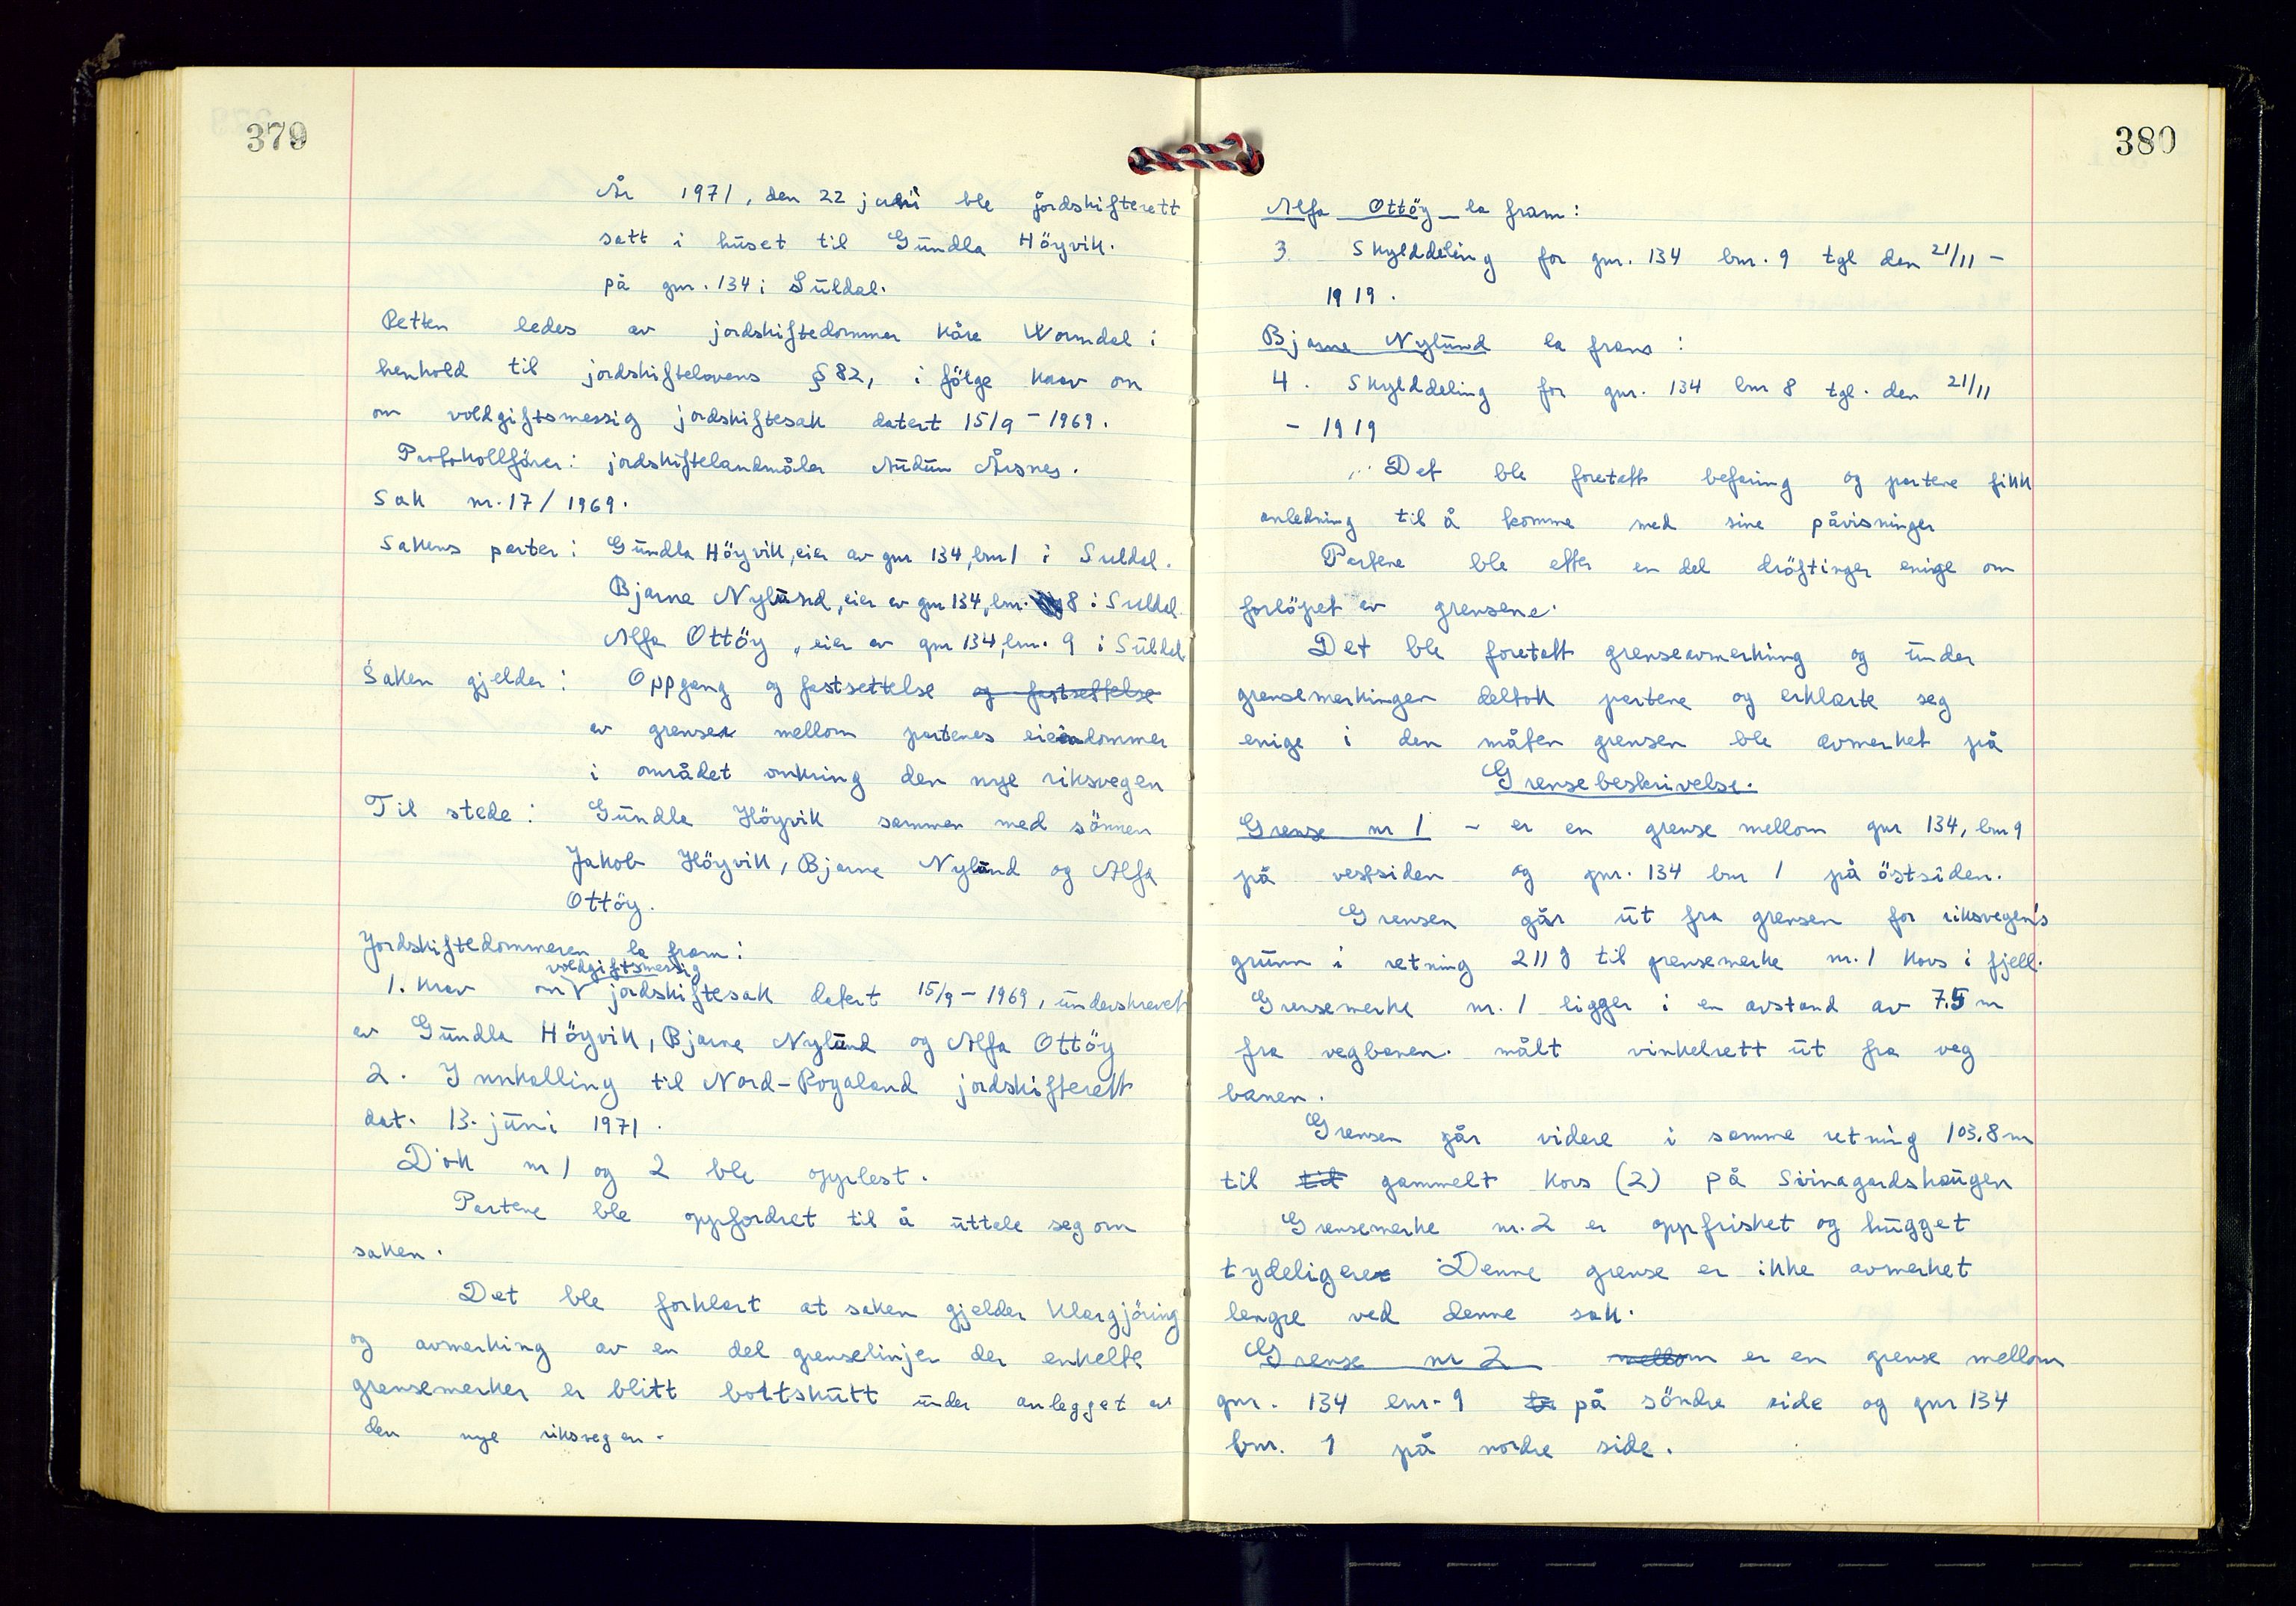 379
År 1971, den 22 juni ble jordskifterett
satt i huset til Gundla Höyvik.
på gnr. 134 i Suldal.
Retten ledes av jordskiftedommer Kåre Wormdal i
henhold til jordskiftelovens § 82, i fölge krav om
om voldgiftsmessig jordskiftesak datert 15/9 - 1969.
Protokollförer: jordskiftelandmåler Audun Årsnes.
Sak nr. 17 / 1969.
Sakens parter: Gundla Höyvik, eier av gnr 134, bnr 1 i Suldal.
Bjarne Nylund, eier av gnr 134, bnr. 8 i Suldal.
Alfa Ottöy, eier av gnr 134, bnr. 9 i Suldal
Saken gjelder: Oppgang og fastsettelse og fastsettelse
av grenser mellom partenes eiendommer
i området omkring den nye riksvegen
Til stede: Gundla Höyvik sammen med sönnen
Jakob Höyvik, Bjarne Nylund og Alfa
Ottöy.
Jordskiftedommeren la fram:
voldgiftsmessig
1. Krav om jordskiftesak datert 15/9 - 1969, underskrevet
av Gundla Höyvik, Bjarne Nylund og Alfa Ottöy
2. Innkalling til Nord-Rogaland jordskifterett
dat. 13. juni 1971.
Dok nr 1 og 2 ble opplest.
Partene ble oppfordret til å uttale seg om
saken.
Det ble forklart at saken gjelder klargjöring
og avmerking av en del grenselinjer der enkelte
grensemerker er blitt bottskutt under anlegget av
den nye riksvegen.
380
Alfa Ottöy la fram:
3. Skylddeling for gnr. 134 bnr. 9 tgl den 21/11 -
1919.
Bjarne Nylund la fram:
4. Skylddeling for gnr. 134 bnr 8 tgl. den 21/11
- 1919
Det ble foretatt befaring og partene fikk
anledning til å komme med sine påvisninger
Partene ble etter en del dröftinger enige om
forlöpet av grensene.
Det ble foretatt grenseavmerking og under
grensemerkingen deltok partene og erklærte seg
enige i den måten grensen ble avmerket på
Grensebeskrivelse.
Grense nr 1 - er en grense mellom gnr 134, bnr 9
på vestsiden og gnr. 134 bnr 1 på östsiden.
Grensen går ut fra grensen for riksvegen's
grunn i retning 211 g til grensemerke nr. 1 kors i fjell.
Grensemerke nr. 1 ligger i en avstand av 7.5 m
fra vegbanen. målt vinkelrett ut fra veg
banen.
Grensen går videre i samme retning 103.8 m
til til gammelt kors (2) på Svinagardshaugen
Grensemerke nr. 2 er oppfrisket og hugget
tydeligere. Denne grense er ikke avmerket
lengre ved denne sak.
Grense nr 2 mellom er en grense mellom
gnr. 134 bnr. 9 på söndre side og gnr 134
bnr. 1 på nordre side.